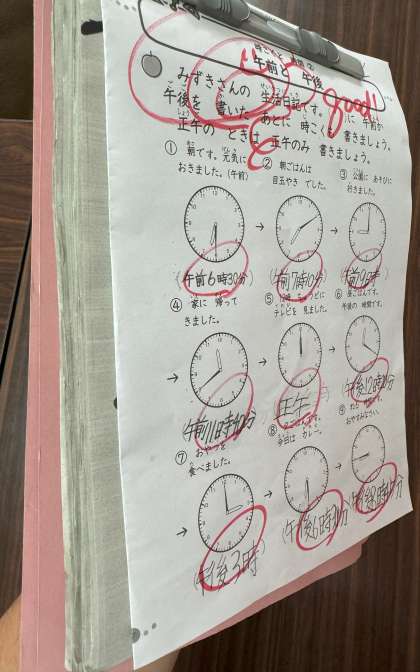 午前と 午後
Good!!
みずきさんの 生活日記です。
午後を 書いた あとに 時こくを 書きましょう。
正午の ときは 正午のみ 書きましょう。
① 朝です。元気に
おきました。(午前)
② 朝ごはんは
目玉やき でした。
③ 公園に あそびに
行きました。
(午前6時30分)
(午前7時10分)
(午前9時)
④ 家に 帰って
きました。
⑤
テレビを 見ました。
⑥ 昼ごはんです。
午後の 時間です。
(午前11時40分)
(正午)
(午後12時20分)
⑦ おやつを
食べました。
⑧
今日は カレー。
⑨
おやすみなさい。
(午後3時)
(午後6時
(午後8時